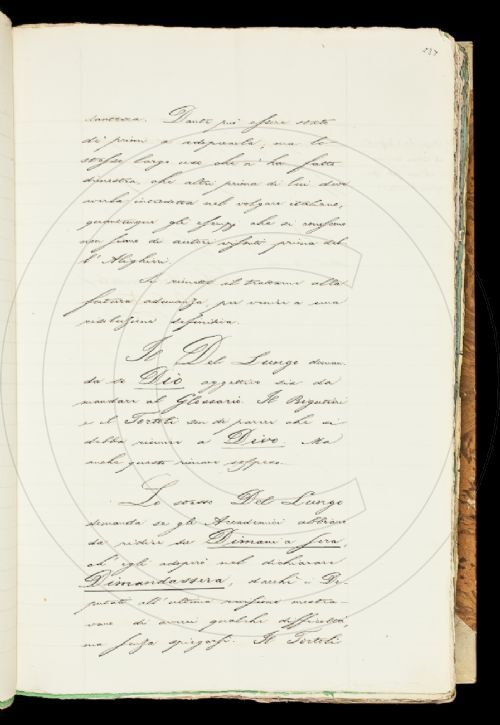 237
dantesca. Dante può essere stato
de' primi a adoperarla, ma lo
stesso largo uso che n' ha fatto
dimostra, che altri prima di lui deve
averla introdotta nel volgare italiano,
quantunque gli esempj che si
non siano di autori prima del
l'Alighieri.
Si rimette al trattarne alla
futura adunanza per venire a una
risoluzione definitiva.
Il Del Lungo doman-
da se Dio aggettivo sia da
mandare al Glossario. Il Rigutini
e il Tortoli son di parere che si
debba riunire a Divo. Ma
anche questo rimane sospeso.
Lo stesso Del Lungo
domanda se gli Accademici abbiano
da ridire su Dimani a sera,
ch'egli adoprò nel dichiarare
Dimandassera, dacchè i De-
putati all'ultima revisione mostra-
rono di averci qualche difficoltà,
ma senza spiegarsi. Il Tortoli